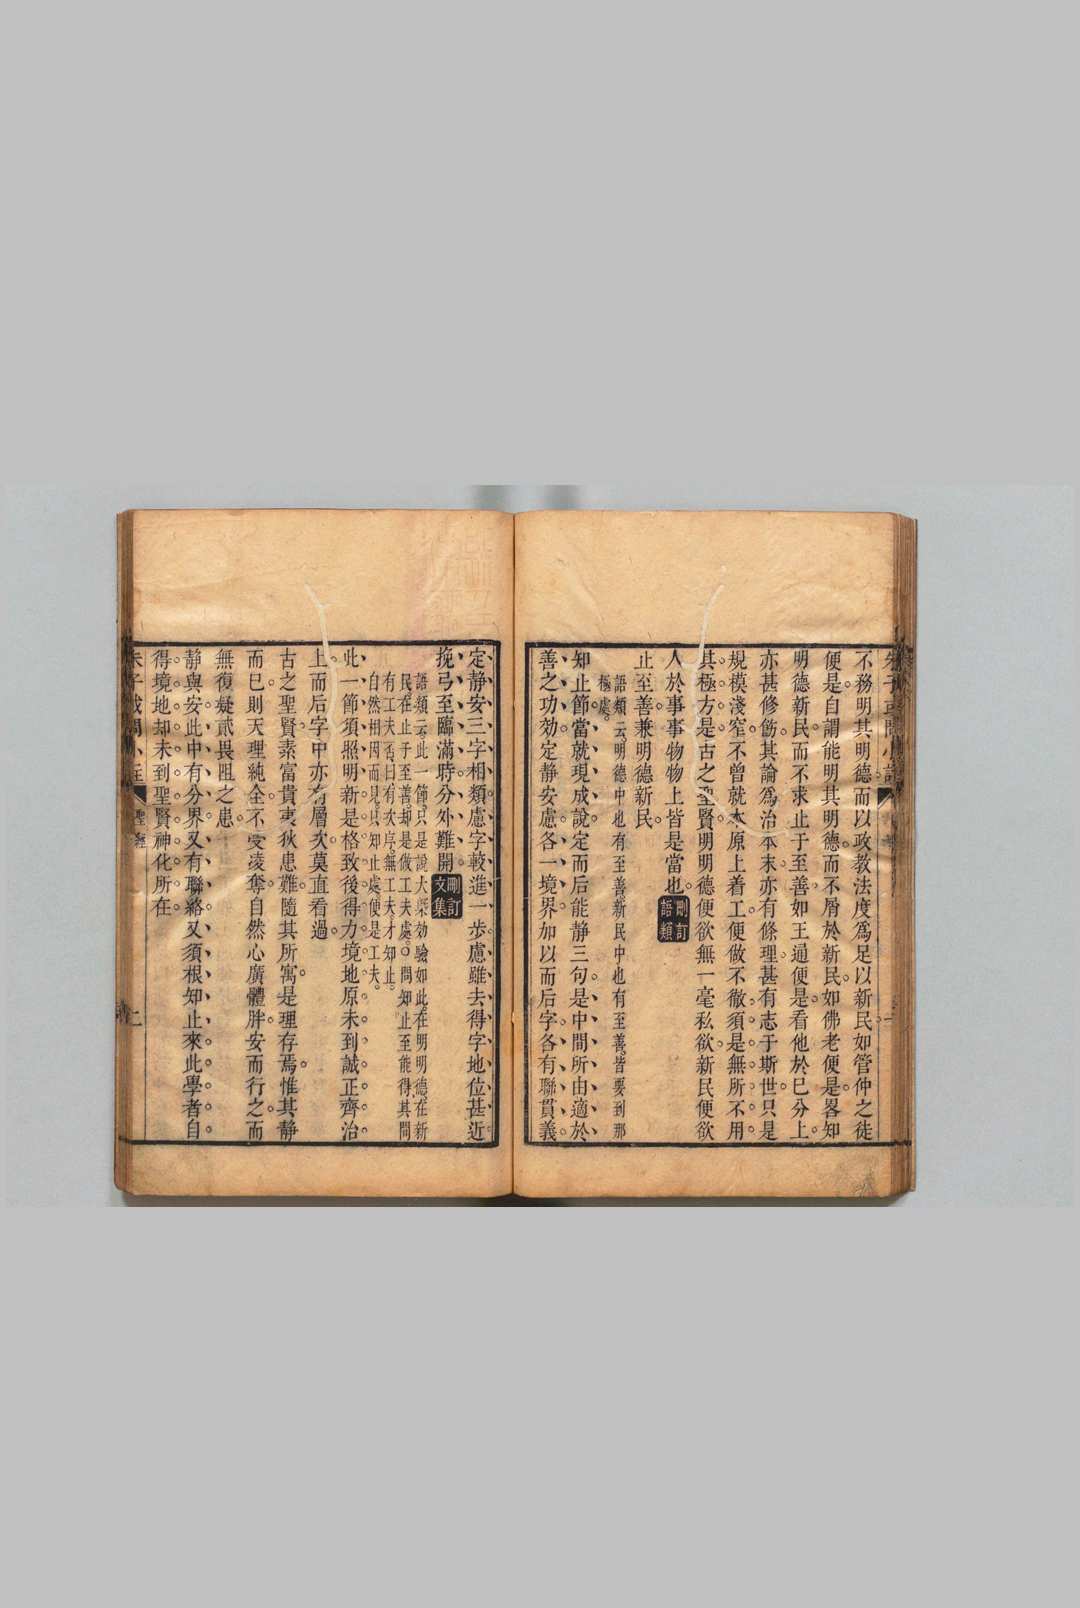 不務明其明德而以政教法度爲足以新民如管仲之徒
便是自謂能明其明德而不屑於新民如佛老便是畧知
明德新民而不求止于至善如王通便是看他於巳分上
亦甚修飭其論爲治本末亦有條理甚有志于斯世只是
規模淺窄不曾就本原上着工便做不徹須是無所不用
其極方是古之聖賢明明德便欲無一毫私欲新民便欲
人於事事物物上皆是當也刪訂語類
止至善兼明德新民
語類云明德中也有至善新民中也有至善皆要到那
極處
知止節當就現成說定而后能静三句是中間所由適於
善之功効定静安慮各一境界加以而后字各有聯貫義
定静安三字相類慮字較進一步慮雖去得字地位甚近
挽弓至臨滿時分外難開刪訂文集
語類云此一節只是說大槩効驗如此在明明德在新
民在止于至善却是做工夫處○問知止至能得其間
有工夫否曰有次序無工夫才知止
自然相因而見只知止處便是工夫
此一節須照明新是格致後得力境地原未到誠正齊治
上而后字中亦有層次莫直看過
古之聖賢素富貴夷狄患難隨其所寓是理存焉惟其静
而巳則天理純全不受凌奪自然心廣體胖安而行之而
無復疑貳畏阻之患
静與安此中有分界又有聯絡又須根知止來此學者自
得境地却未到聖賢神化所在
朱子或問小註 聖經 二